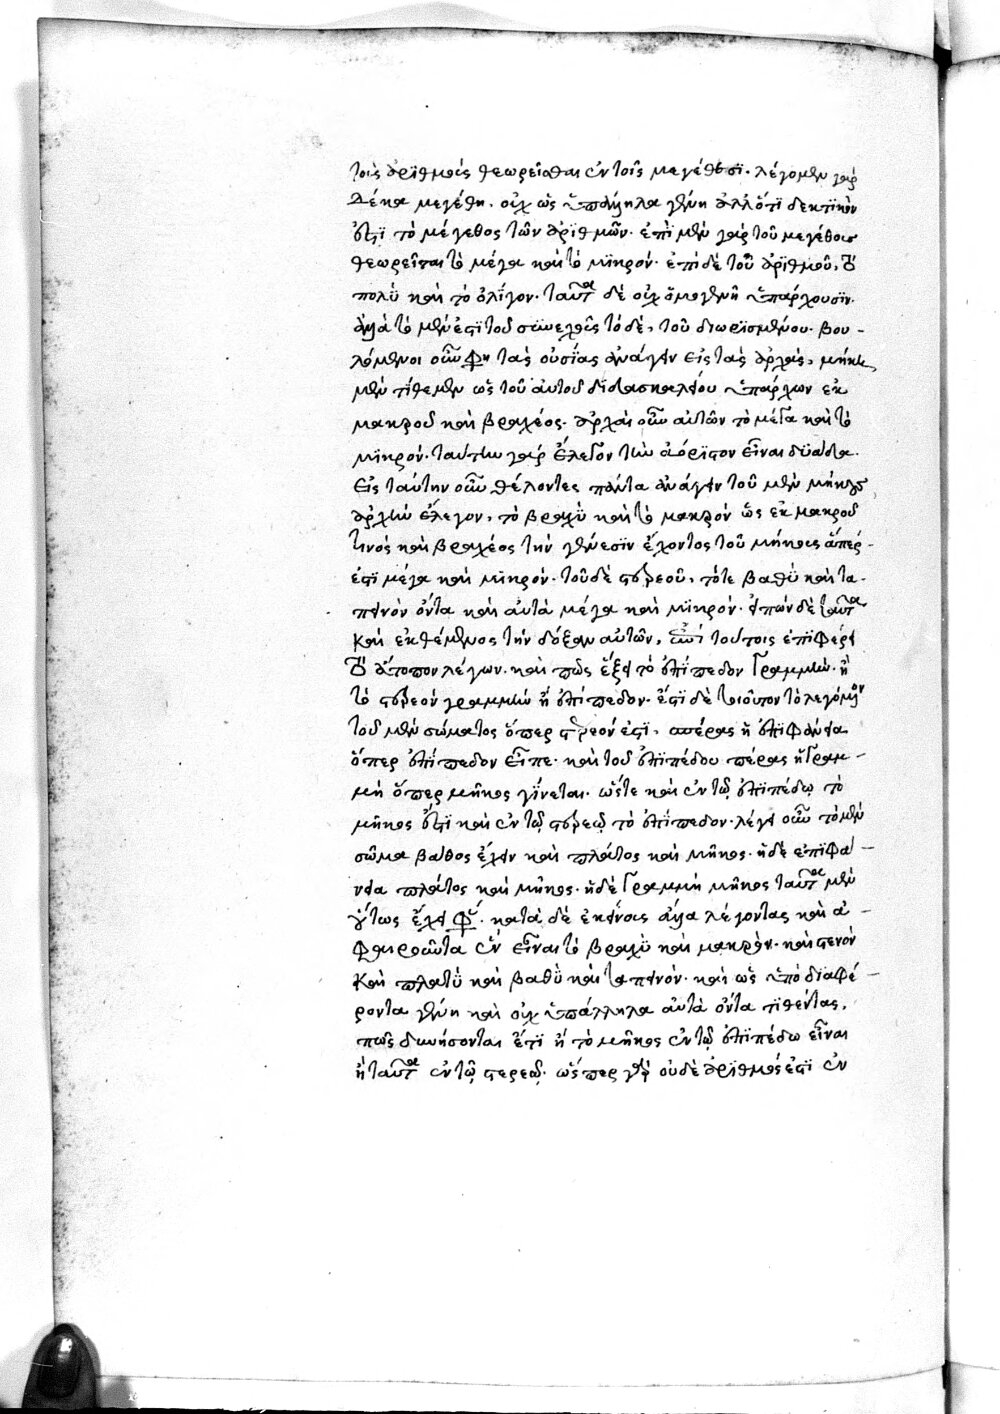 τοῖς ἀριθμοῖς θεωρεῖσθαι ἐν τοῖς μεγέθεσι. λέγομεν γὰρ
δέκα μεγέθη. οὐχ ὡς ὑπάλληλα γένη ἀλλ' ὅτι δεκτικὸν
ἐστὶ τὸ μέγεθος τῶν ἀριθμῶν. ἐπὶ μὲν γὰρ τοῦ μεγέθους
θεωρεῖται τὸ μέγα καὶ τὸ μικρόν. ἐπὶ δὲ τοῦ ἀριθμοῦ, τὸ
πολὺ καὶ τὸ ὀλίγον. ταῦτα δὲ οὐχ ὁμογενῆ ὑπάρχουσιν.
ἀλλὰ τὸ μὲν ἐπὶ τοῦ συνεχοῦς τὸ δὲ, τοῦ διωρισμένου. βου-
λόμενοι οὖν φη τὰς οὐσίας ἀνάγειν εἰς τὰς ἀρχὰς, μήκη
μὲν τίθεμεν ὡς τοῦ αὐτοῦ διδασκαλείου ὑπάρχων ἐκ
μακροῦ καὶ βραχέος. ἀρχαὶ οὖν αὐτῶν τὸ μέγα καὶ τὸ
μικρόν. ταύτην γὰρ ἔλεγον τὴν ἀόριστον εἶναι δυάδα.
εἰς ταύτην οὖν θέλοντες πάντα ἀνάγειν τοῦ μὲν μήκους
ἀρχὴν ἔλεγον, τὸ βραχὺ καὶ τὸ μακρὸν ὡς ἐκ μακροῦ
τινὸς καὶ βραχέος τὴν γένεσιν ἔχοντος τοῦ μήκους ἅπερ-
ἐστὶ μέγα καὶ μικρόν. τοῦ δὲ στερεοῦ, τότε βαθὺ καὶ τα-
πεινὸν ὄντα καὶ αὐτὰ μέγα καὶ μικρόν. εἰπὼν δὲ ταῦτα
καὶ ἐκθέμενος τὴν δόξαν αὐτῶν, τούτοις ἐπιφέρει
τὸ ἄτοπον λέγων. καὶ πῶς ἕξει τὸ ἐπίπεδον γραμμὴν. ἢ
τὸ στερεὸν γραμμὴν ἢ ἐπίπεδον. ἔστι δὲ τοιοῦτον τὸ λεγόμενον
τοῦ μὲν σώματος ὅπερ στερεόν ἐστι, πέρας ἡ ἐπιφάνεια
ὅπερ ἐπίπεδον εἶπε. καὶ τοῦ ἐπιπέδου πέρας ἡ γραμ-
μὴ ὅπερ μῆκος γίνεται. ὥστε καὶ ἐν τῷ ἐπιπέδῳ τὸ
μῆκος ἐστὶ καὶ ἐν τῷ στερεῷ τὸ ἐπίπεδον. λέγει οὖν τὸ μὲν
σῶμα βάθος ἔχειν καὶ πλάτος καὶ μῆκος. ἡ δὲ ἐπιφά-
νεια πλάτος καὶ μῆκος. ἡ δὲ γραμμὴ μῆκος ταῦτα μὲν
οὕτως ἔχει φη. κατὰ δὲ ἐκείνους ἄλλα λέγοντας καὶ ἀ-
φαιροῦντα ἓν εἶναι τὸ βραχὺ καὶ μακρὸν. καὶ στενὸν
καὶ πλατὺ καὶ βαθὺ καὶ ταπεινόν. καὶ ὡς ὑπὸ διαφέ-
ροντα γένη καὶ οὐχ ὑπάλληλα αὐτὰ ὄντα τιθέντας.
πῶς δυνήσονται ἔτι ἢ τὸ μῆκος ἐν τῷ ἐπιπέδω εἶναι
ἢ ταῦτα ἐν τῷ στερεῷ. ὥσπερ γὰρ οὐδὲ ἀριθμός ἐστὶ ἐν